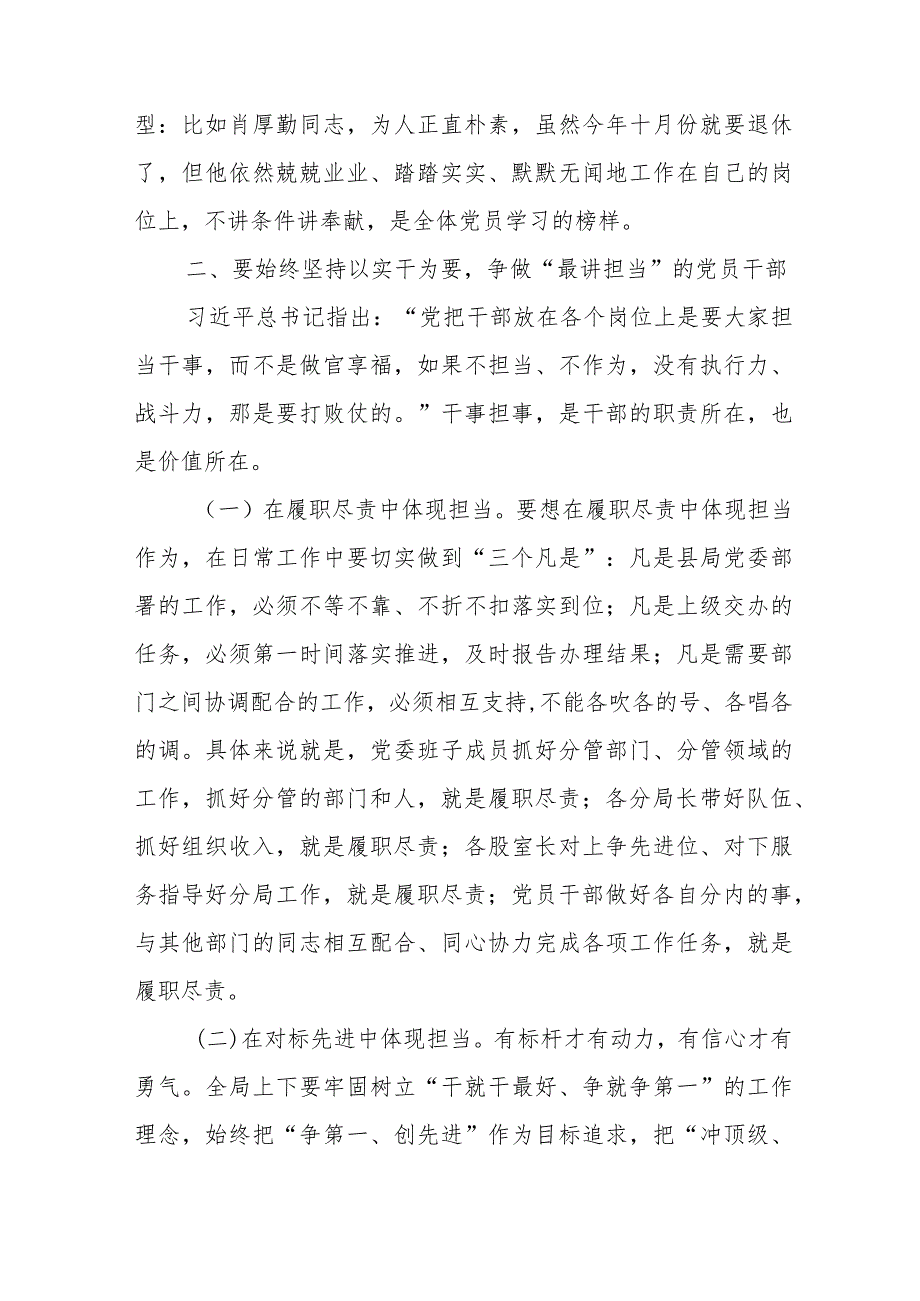 型：比如肖厚勤同志，为人正直朴素，虽然今年十月份就要退休
了，但他依然兢兢业业、踏踏实实、默默无闻地工作在自己的岗
位上，不讲条件讲奉献，是全体党员学习的榜样。
二、要始终坚持以实干为要，争做“最讲担当”的党员干部
习近平总书记指出：“党把干部放在各个岗位上是要大家担
当干事，而不是做官享福，如果不担当、不作为，没有执行力、
战斗力，那是要打败仗的。”干事担事，是干部的职责所在，也
是价值所在。
（一）在履职尽责中体现担当。要想在履职尽责中体现担当
作为，在日常工作中要切实做到“三个凡是”：凡是县局党委部
署的工作，必须不等不靠、不折不扣落实到位；凡是上级交办的
任务，必须第一时间落实推进，及时报告办理结果；凡是需要部
门之间协调配合的工作，必须相互支持,不能各吹各的号、各唱各
的调。具体来说就是，党委班子成员抓好分管部门、分管领域的
工作，抓好分管的部门和人，就是履职尽责；各分局长带好队伍、
抓好组织收入，就是履职尽责；各股室长对上争先进位、对下服
务指导好分局工作，就是履职尽责；党员干部做好各自分内的事，
与其他部门的同志相互配合、同心协力完成各项工作任务，就是
履职尽责。
(二)在对标先进中体现担当。有标杆才有动力，有信心才有
勇气。全局上下要牢固树立“干就干最好、争就争第一”的工作
理念，始终把“争第一、创先进”作为目标追求，把“冲顶级、